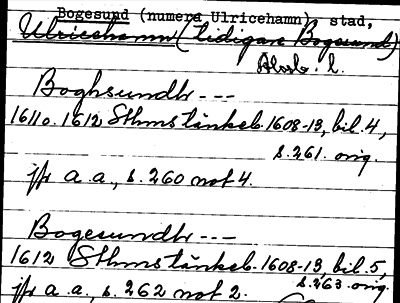 Bogesund (numera Ulricehamn) stad,
Ulricehamn (tidigare Bogesund)
Älvsb. l.
Boghsundh ---
1611 o. 1612 Sthms tänkeb. 1608-13, bil. 4,
s. 261. orig.
jfr a. a., s. 260 not 4.
Bogesundh ---
1612 Sthms tänkeb. 1608-13, bil. 5,
s. 263 orig.
jfr a. a., s. 262 not 2.